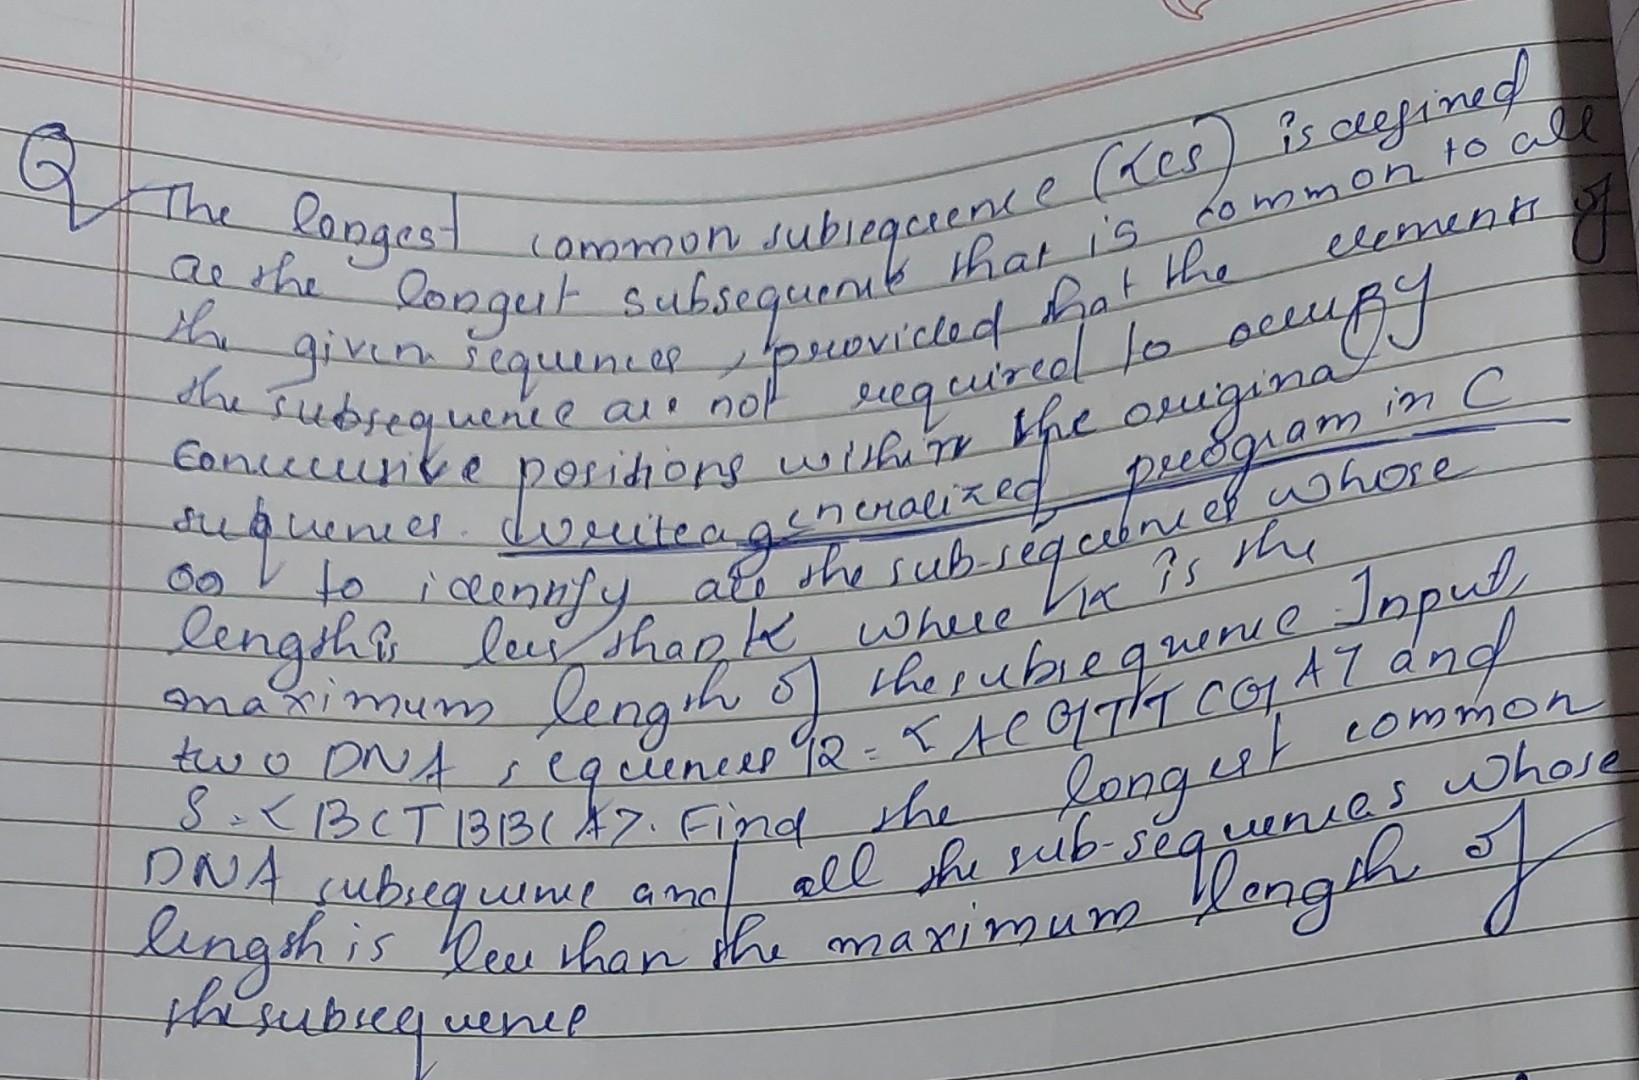 Q The longest common subsequence (LCS) is defined
as the longest subsequence that is common to all
the given sequences, provided that the elements of
the subsequence are not required to occupy
consecutive positions within the original
sequences. Write a generalized program in C
to identify all the sub-sequences whose
length is less than K where K is the
maximum length of the subsequence Input,
two DNA sequences = < and
S = < BCTBBCA>. Find the longest common
DNA subsequence and all the sub-sequences whose
length is less than the maximum length of
the subsequence